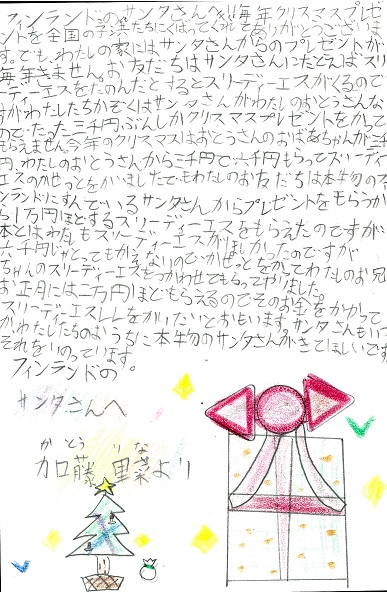 フィンランドのサンタさんへ!!毎年クリスマスプレゼ
ントを全国の子供たちにくばってくれてありがとうございま
す。でも、わたしの家にはサンタさんからのプレゼントが
毎年きません。お友だちはサンタさんにたとえばスリ
ーディーエスをたのんだとするとスリーディーエスがくるので
すがわたしたちかぞくはサンタさんがわたしのおとうさんな
ので、たった三千円ぶんしかクリスマスプレゼントをかって
もらえません。今年のクリスマスはおとうさんのおばあちゃんが三千
円、わたしのおとうさんから三千円で六千円もらってスリーディ
エスのかせっとをかいましたでもわたしのお友だちは本物のフィ
ンランドにすんでいるサンタさんからプレゼントをもらうか
ら1万円ほどするスリーディーエスをもらえたのですが
本とはわたしもスリーディーエスがほしかったのですが
六千円じゃとてもかえないのでかせっとをかってわたしのお兄
ちゃんのスリーディーエスをつかわせてもらってやりました。
お正月には二万円ほどもらえるのでそのお金をつかって
スリーディーエスLLをかいたいとおもいます。サンタさんもいつ
かわたしたちのおうちに本物のサンタさんがきてほしいです。
それをいのっています。
フィンランドの。
サンタさんへ
かとう りな
加藤 里菜より